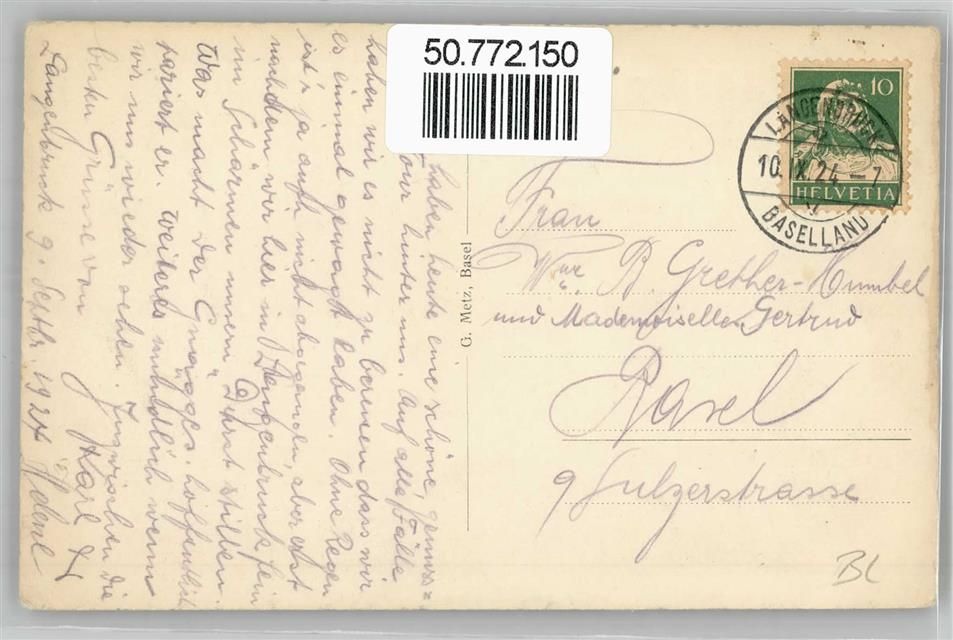 50.772.150
haben heute eine schöne genuss=
Tour hinter uns. Auf alle Fälle
haben wir es nicht zu bereuen dass wir
es einmal gewagt haben. Ohne Regen
ist's ja auch nicht abgegangen, aber erst
nachdem wir hier in Langenbruck fein
im Schärmen unsern Durst stillten.
Was macht der Gnägges, hoffentlich
pariert er. Weiteres mündlich wenn
wir uns wieder sehen. Inzwischen die
besten Grüsse von Karl &
Langenbruck 9. Septbr. 1924 Helene
G. Metz, Basel
10
HELVETIA
LANGENBRUCK
10.IX.24 – 7
BASELLAND
Frau
Wwe. B. Grether-Humbel
und Mademoiselle Gertrud
Basel
9 Sulzerstrasse
BL